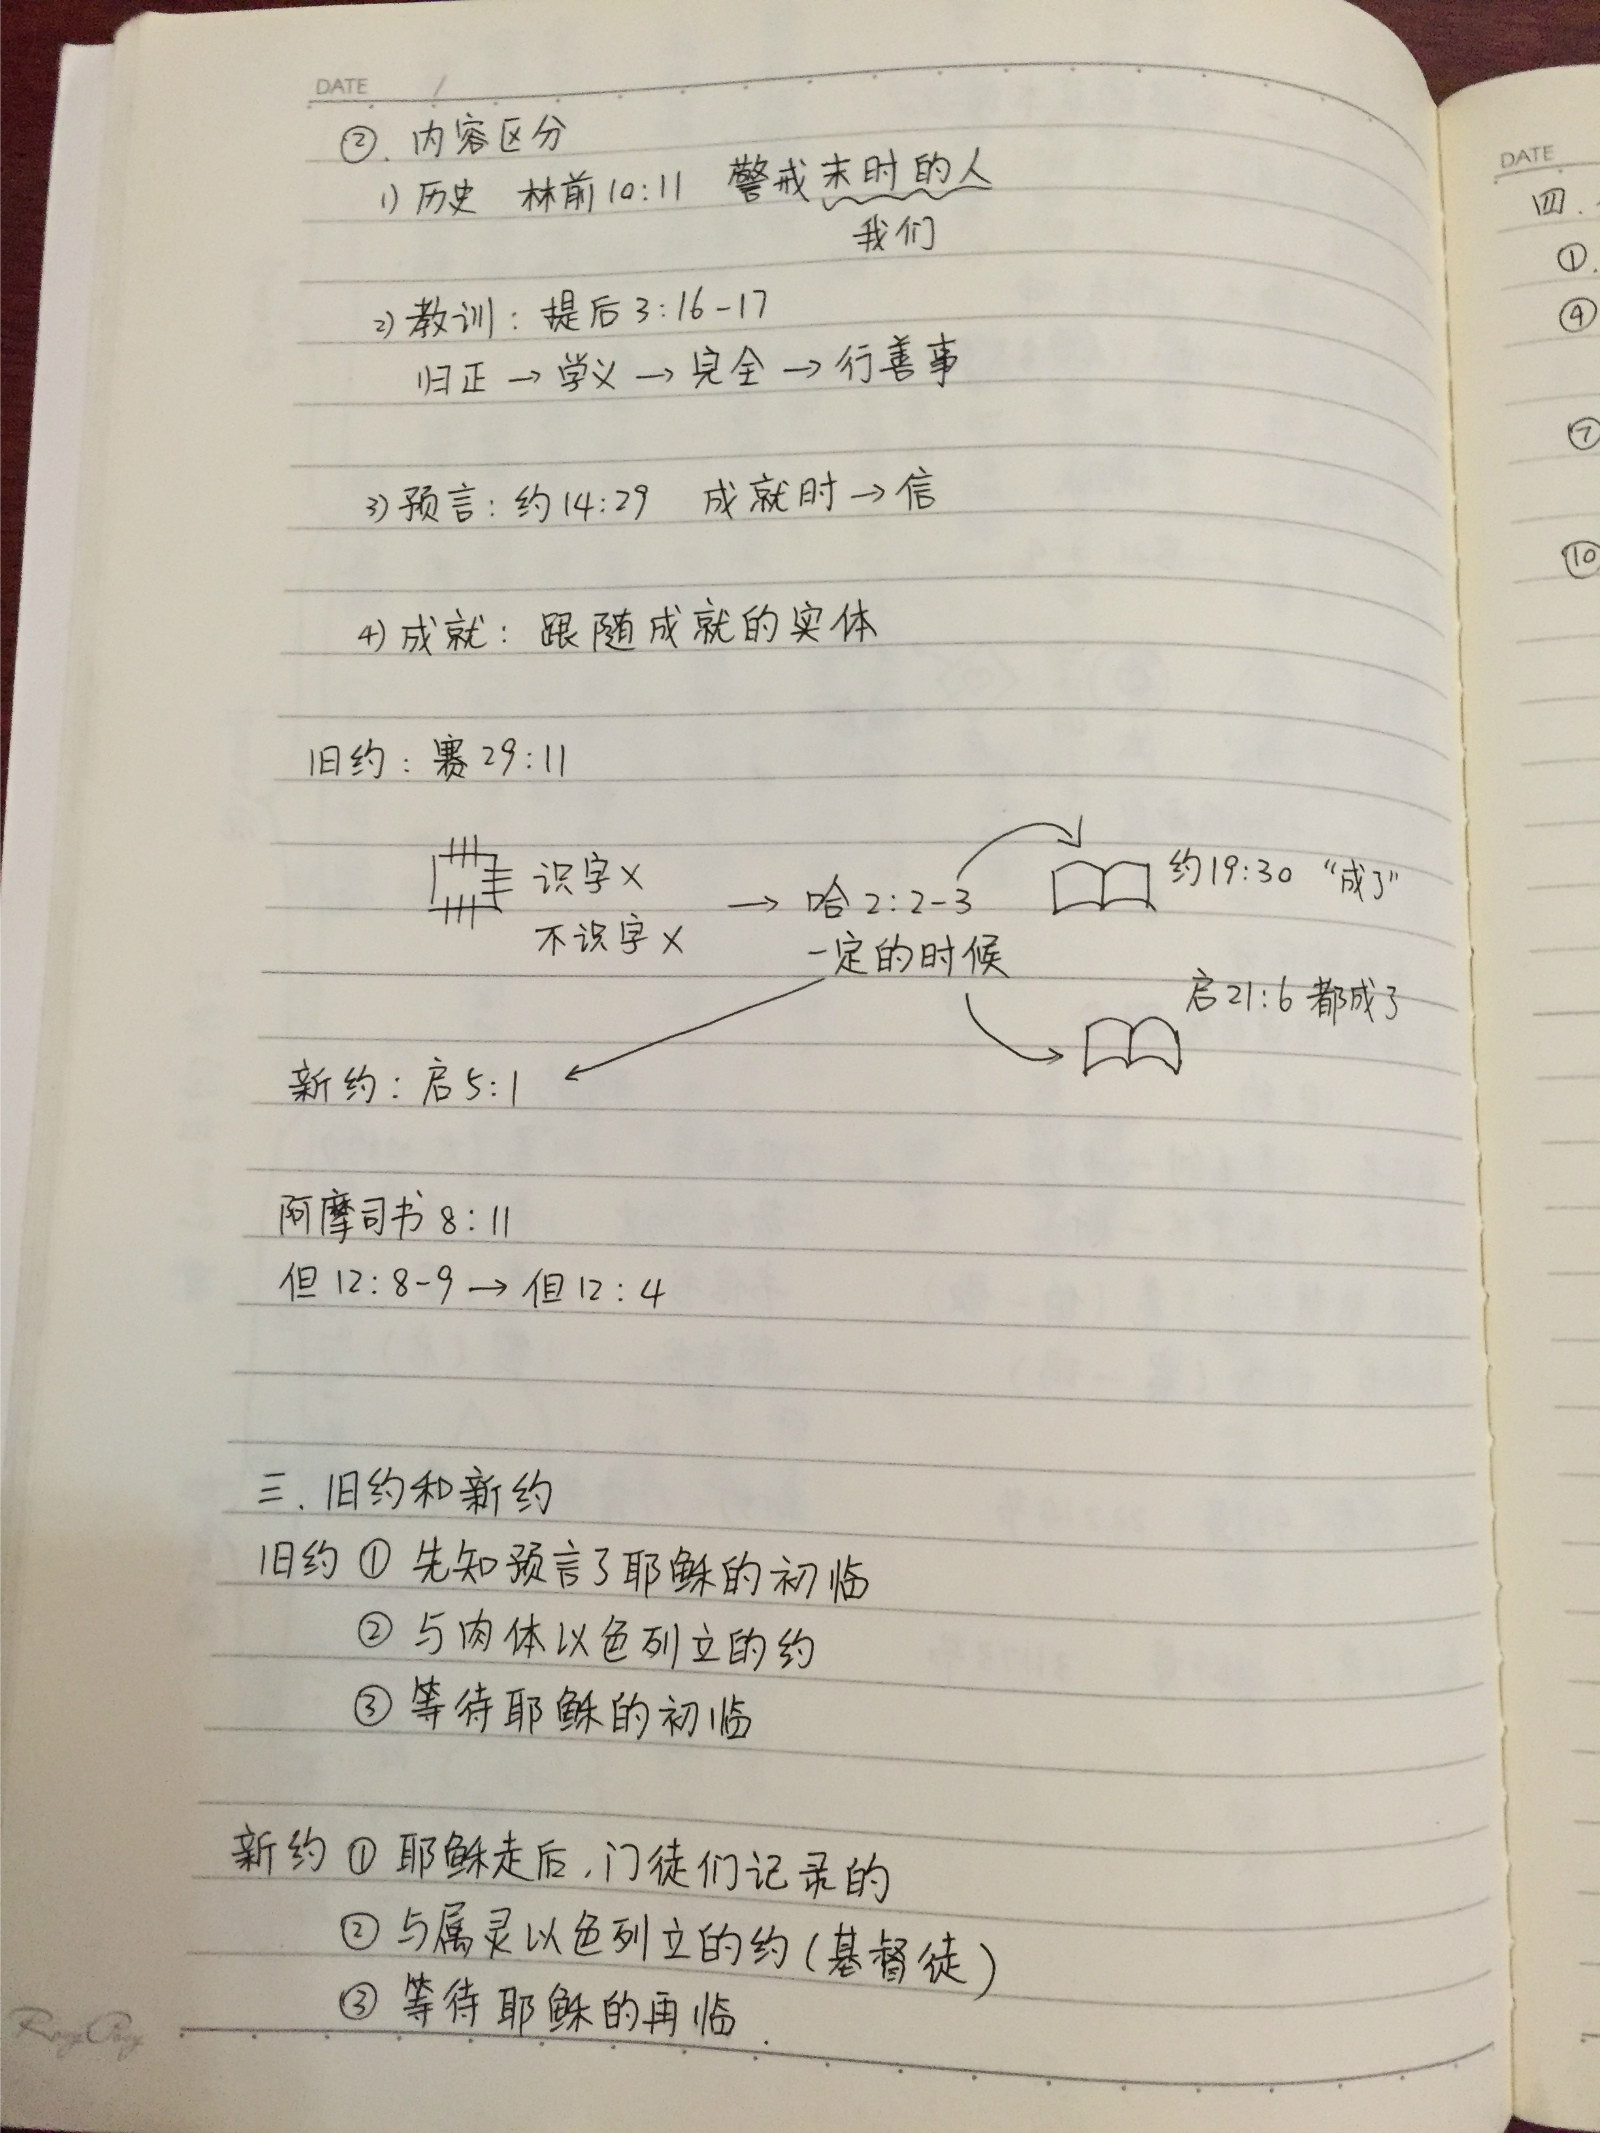 DATE /
②. 内容区分
1) 历史 林前10:11 警戒末时的人
我们
2) 教训: 提后3:16-17
归正→学义→完全→行善事
3) 预言: 约14:29 成就时→信
4) 成就: 跟随成就的实体
旧约: 赛29:11
识字× → 哈2:2-3 约19:30 “成了”
不识字× 一定的时候
启21:6 都成了
新约: 启5:1
阿摩司书8:11
但12:8-9→但12:4
三. 旧约和新约
旧约 ① 先知预言了耶稣的初临
② 与肉体以色列立的约
③ 等待耶稣的初临
新约 ① 耶稣走后,门徒们记录的
② 与属灵以色列立的约(基督徒)
③ 等待耶稣的再临.
DATE
四.
①.
④
⑦
⑩